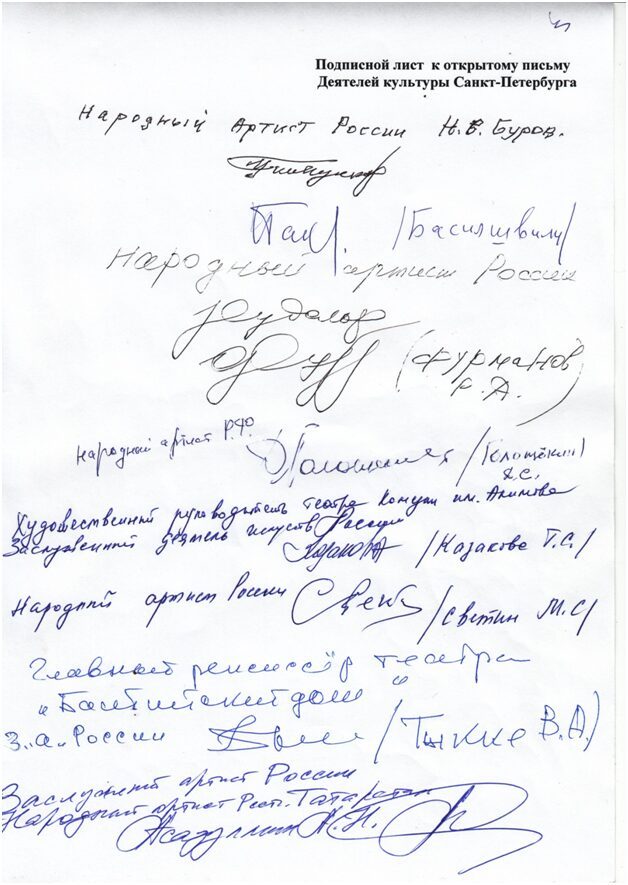 Подписной лист к открытому письму
Деятелей культуры Санкт-Петербурга
Народный Артист России Н.В. Буров.
/Басилашвили/
Народный артист России
Рудольф
(Фурманов
Р.А.)
Народный артист Р.Ф.
/Голощёкин
Д.С./
Художественный руководитель театра Комедии им. Акимова
Заслуженный деятель искусств России
/Казакова Т.С./
Народный артист России
/Светин М.С/
Главный режиссёр театра
"Балтийский дом"
З.а. России /Тыкке В.А./
Заслуженный артист России
Народный артист Респ. Татарстан
Асадуллин А.Н.